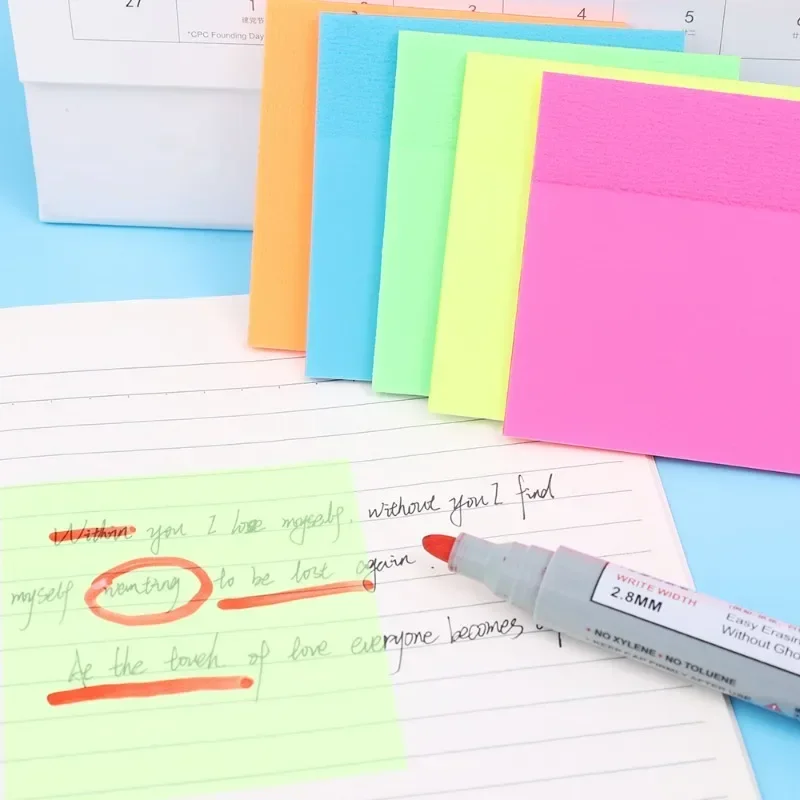 27
1
2
3
4
5
6
建党节
*CPC Founding Day
Within you I lose myself, without you I find
myself wanting to be lost again.
At the touch of love everyone becomes
WRITE WIDTH
2.8MM
Easy Erasin
Without Gho
• NO XYLENE • NO TOLUENE
• KEEP CAP FIRMLY AFTER USE